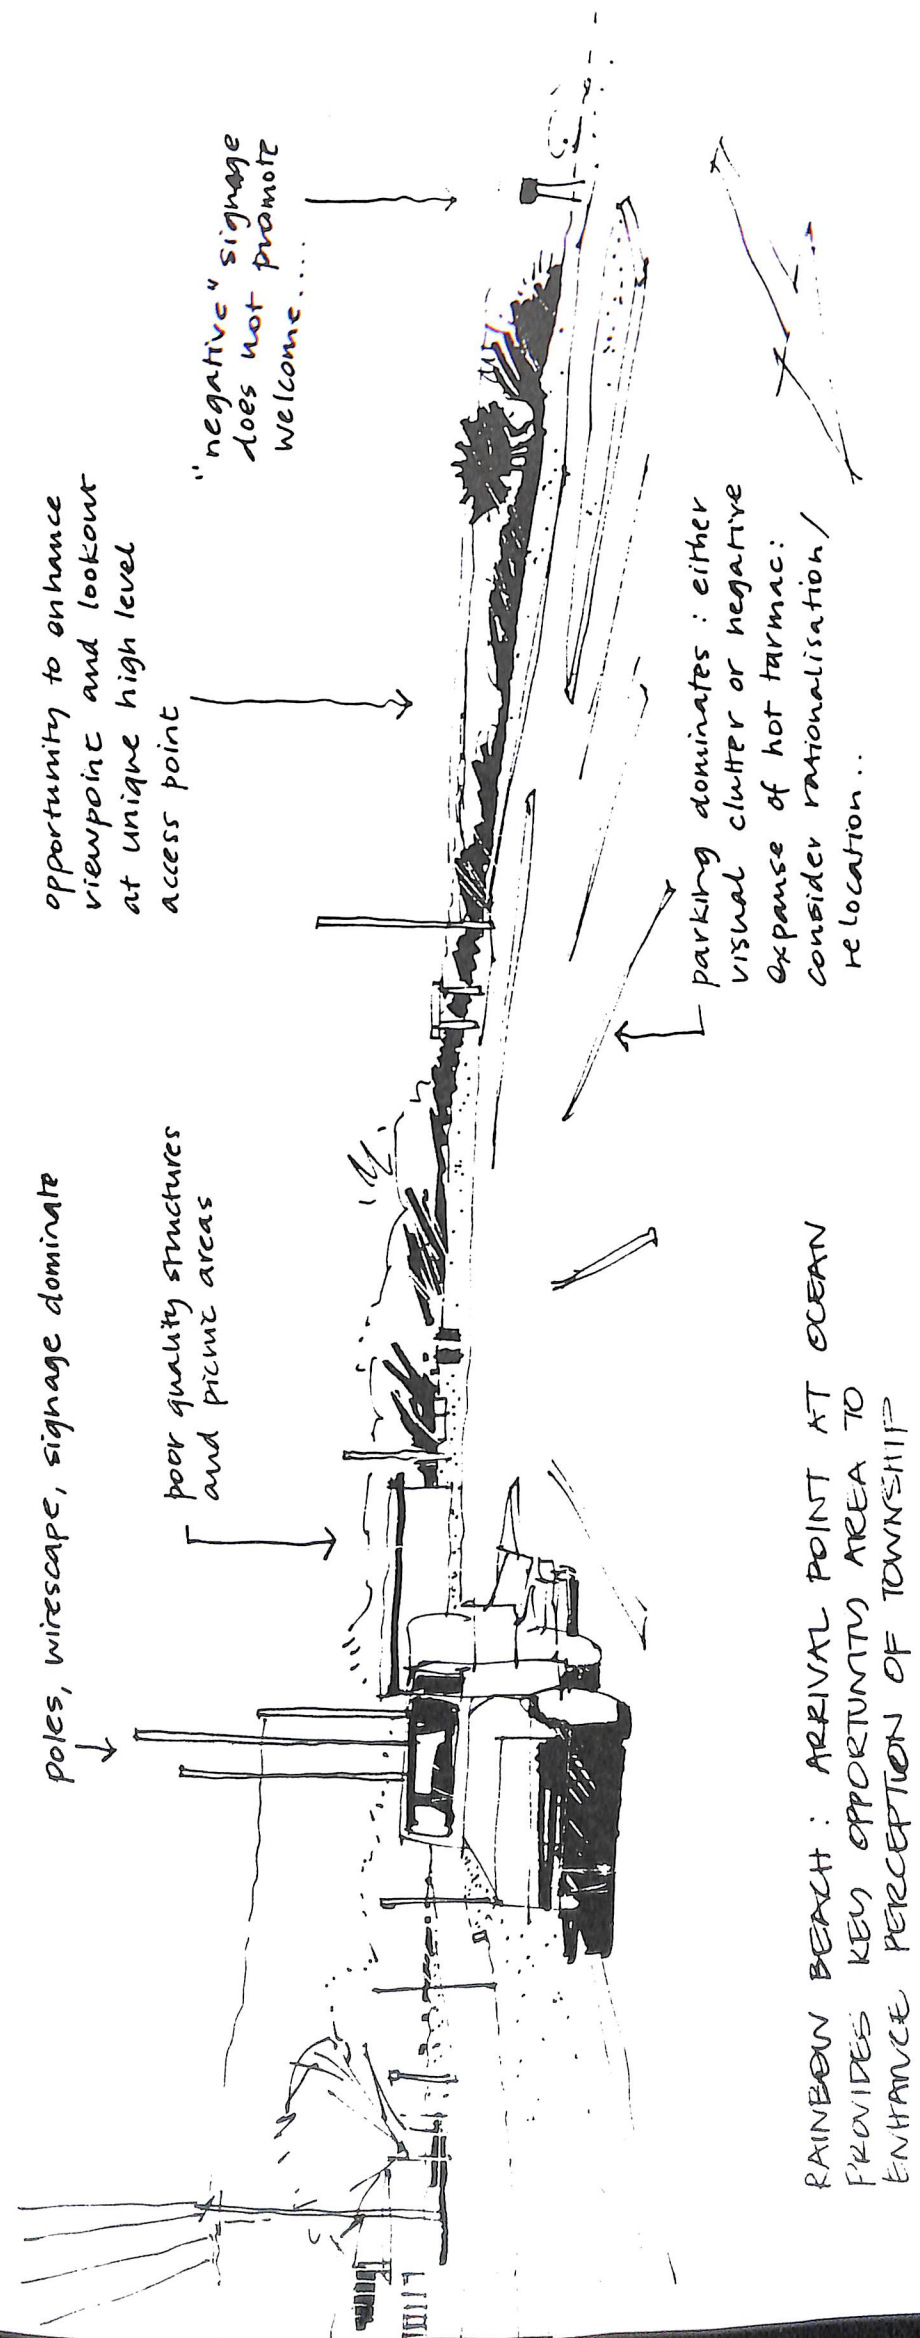 poles, wirescape, signage dominate
poor quality structures
and picnic areas
opportunity to enhance
viewpoint and lookout
at unique high level
access point
"negative" signage
does not promote
welcome....
parking dominates : either
visual clutter or negative
expanse of hot tarmac:
consider rationalisation/
relocation..
RAINBOW BEACH : ARRIVAL POINT AT OCEAN
PROVIDES KEY OPPORTUNITY AREA TO
ENHANCE PERCEPTION OF TOWNSHIP